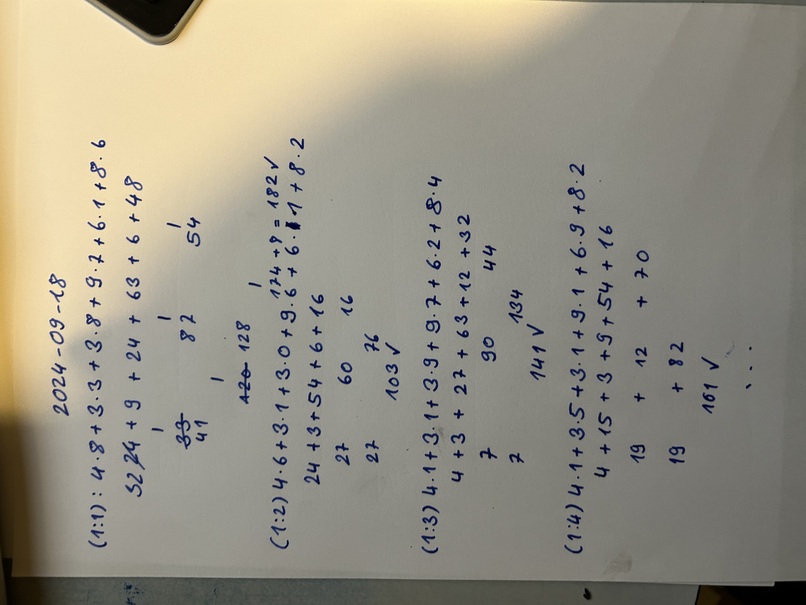 2024-09-18
(1:1): 4·8+3·3+3·8+9·7+6·1+8·6
32 24+9+24+63+6+48
33 41 87 54
120 128 174+8=182✓
(1:2) 4·6+3·1+3·0+9·6+6·1+8·2
24+3+54+6+16
27 60 16
27 76
103✓
(1:3) 4·1+3·1+3·9+9·7+6·2+8·4
4+3+27+63+12+32
7 90 44
7 134
141✓
(1:4) 4·1+3·5+3·1+9·1+6·9+8·2
4+15+3+9+54+16
19 + 12 + 70
19 + 82
101✓
...